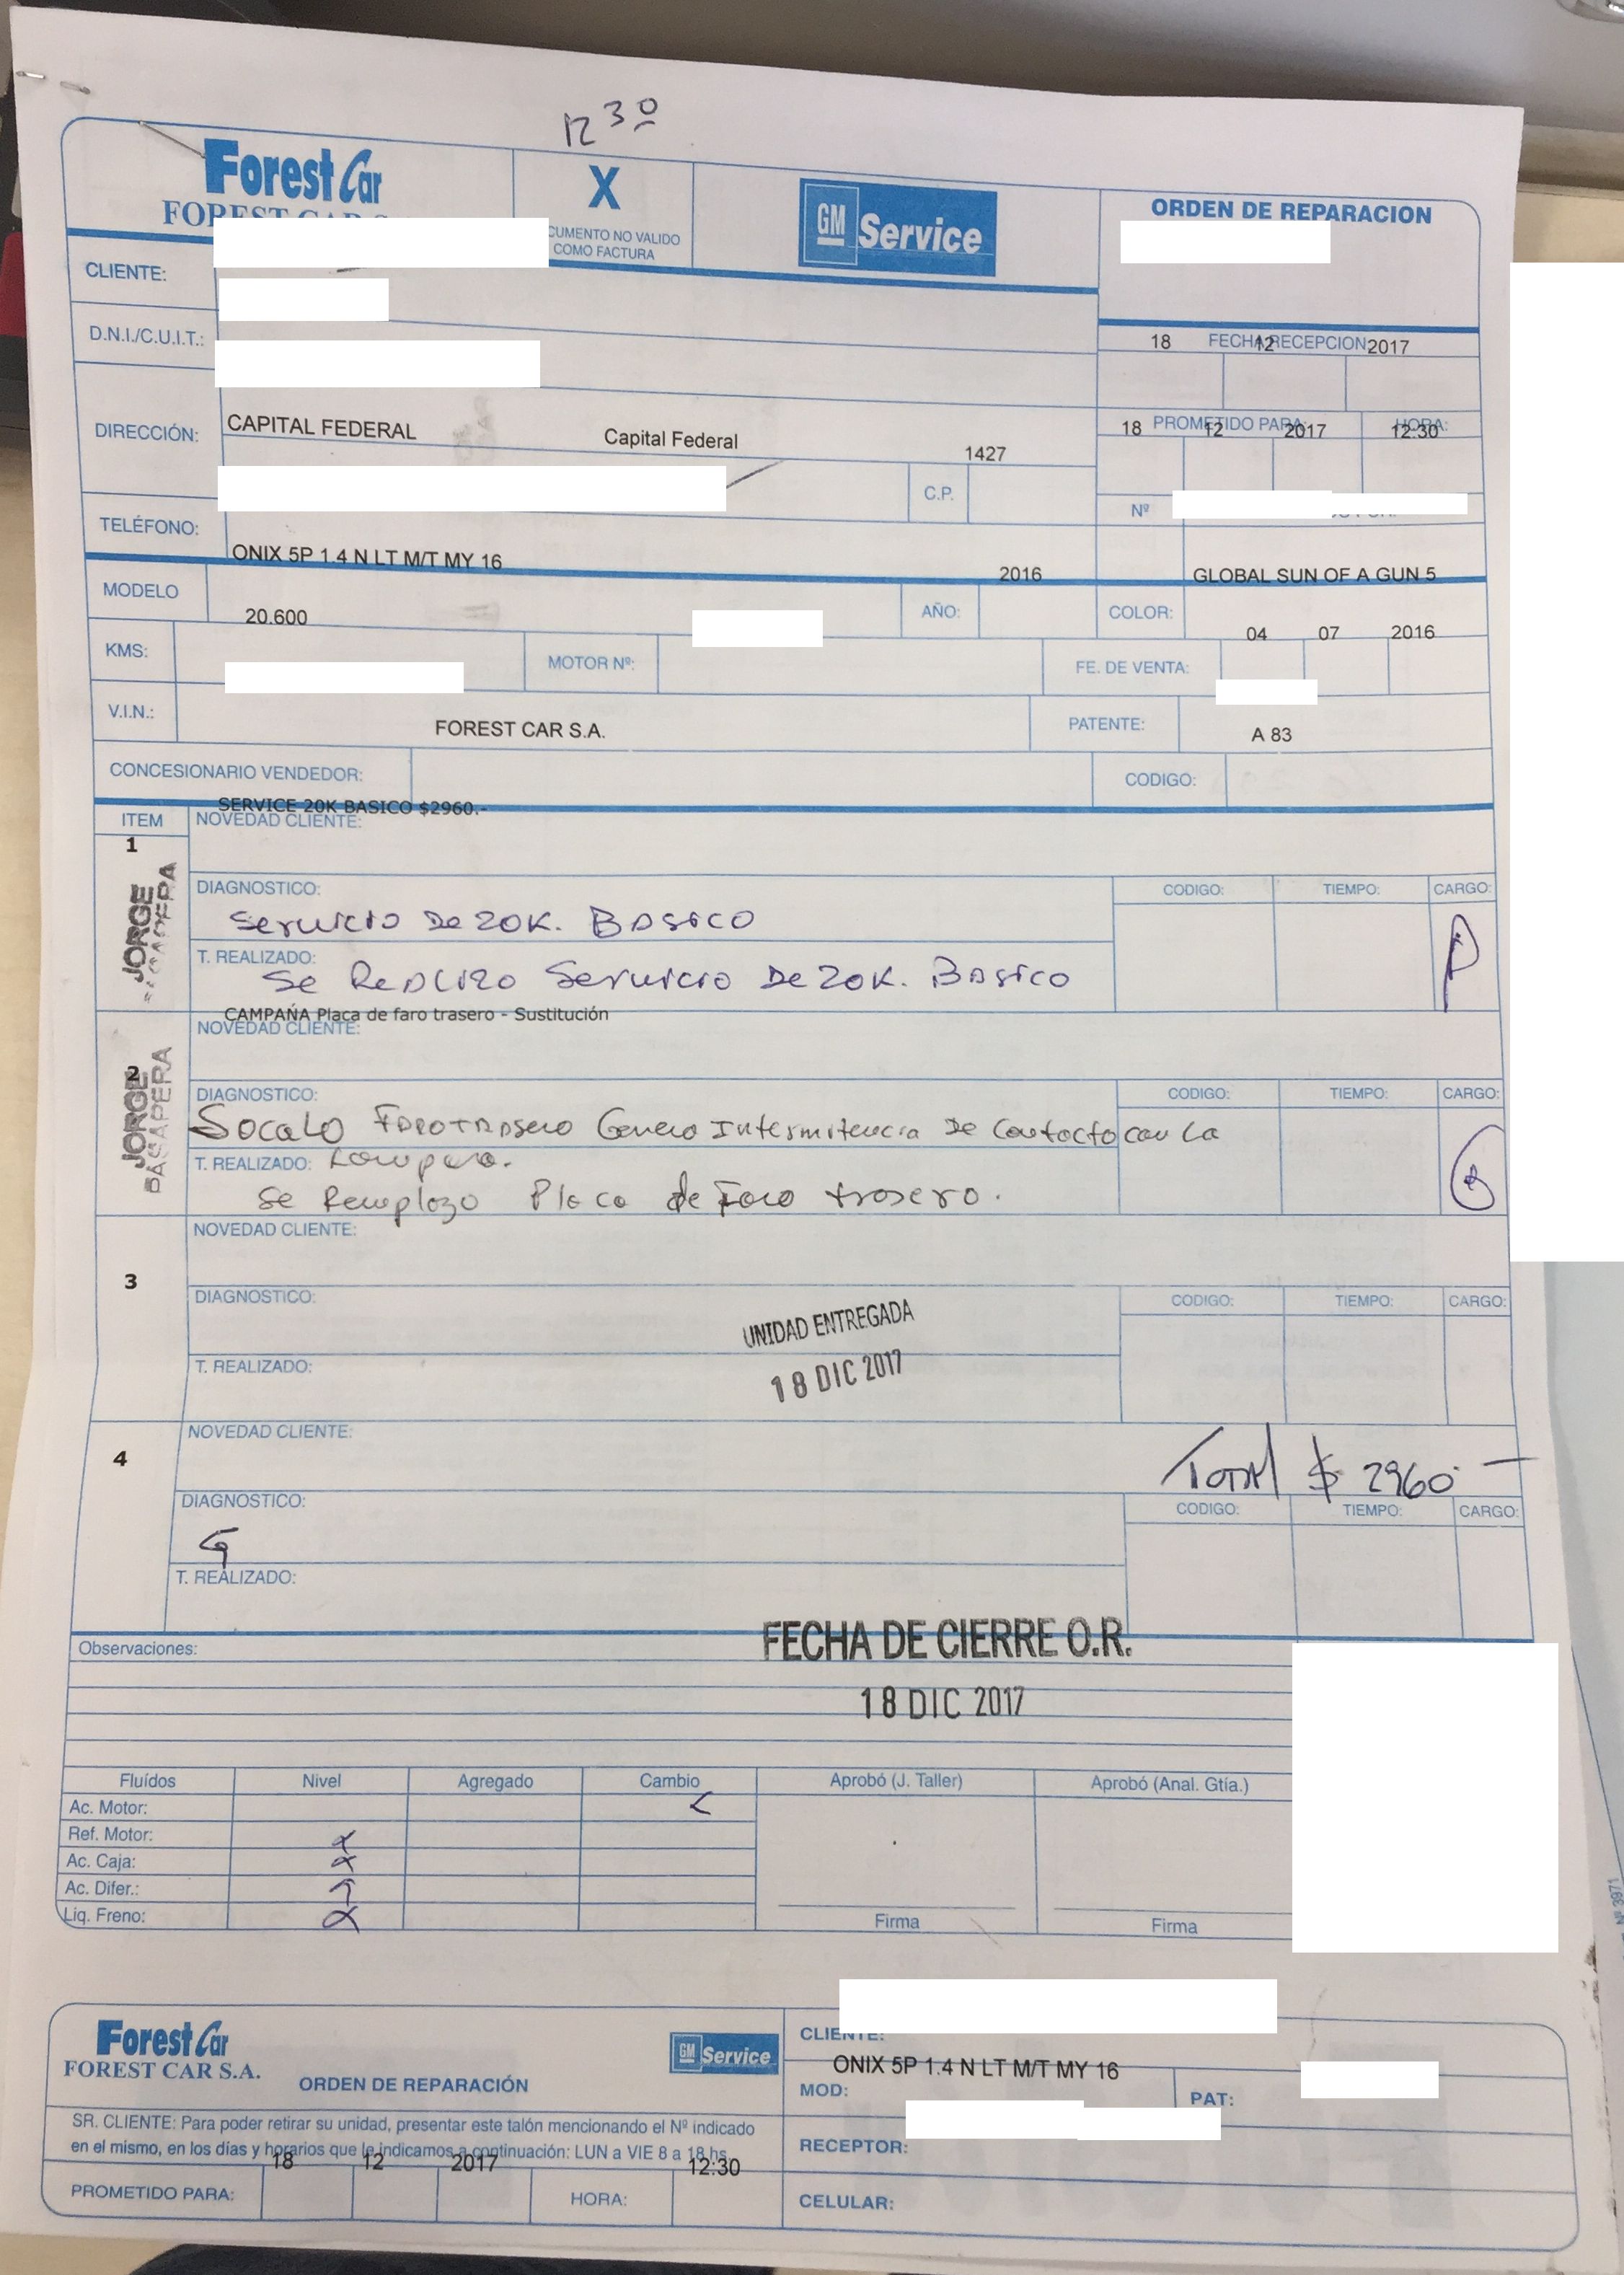 12 30
Forest Car
X
GM Service
ORDEN DE REPARACION
CUMENTO NO VALIDO
COMO FACTURA
CLIENTE:
D.N.I./C.U.I.T.:
18 FECHA RECEPCION: 12 2017
DIRECCIÓN: CAPITAL FEDERAL Capital Federal 1427
18 PROMETIDO PARA: 12 2017 HORA: 12:30
C.P.
Nº
TELÉFONO:
MODELO ONIX 5P 1.4 N LT M/T MY 16
AÑO: 2016
COLOR: GLOBAL SUN OF A GUN 5
KMS: 20.600
MOTOR Nº:
FE. DE VENTA: 04 07 2016
V.I.N.:
PATENTE:
CONCESIONARIO VENDEDOR: FOREST CAR S.A.
CODIGO: A 83
SERVICE 20K BASICO $2960.-
ITEM NOVEDAD CLIENTE:
1
JORGE
DIAGNOSTICO: CODIGO: TIEMPO: CARGO:
Servicio De 20K. BASICO
P
T. REALIZADO:
Se Realizo Servicio De 20K. Basico
CAMPAÑA Placa de faro trasero - Sustitución
NOVEDAD CLIENTE:
2
JORGE
BASAPERA
DIAGNOSTICO: CODIGO: TIEMPO: CARGO:
Socalo Faro trasero Genero Intermitencia De Contacto con La
T. REALIZADO: Lampara.
G
Se Remplazo Placa de Faro trasero.
NOVEDAD CLIENTE:
3
DIAGNOSTICO: CODIGO: TIEMPO: CARGO:
UNIDAD ENTREGADA
T. REALIZADO:
18 DIC 2017
NOVEDAD CLIENTE:
4
Total $ 2960.-
DIAGNOSTICO: CODIGO: TIEMPO: CARGO:
G
T. REALIZADO:
Observaciones:
FECHA DE CIERRE O.R.
18 DIC 2017
Fluídos Nivel Agregado Cambio Aprobó (J. Taller) Aprobó (Anal. Gtía.)
Ac. Motor:
Ref. Motor:
Ac. Caja:
Ac. Difer.:
Liq. Freno:
Firma Firma
Nº 3971
Forest Car
FOREST CAR S.A.
ORDEN DE REPARACIÓN
GM Service
CLIENTE:
MOD: ONIX 5P 1.4 N LT M/T MY 16
PAT:
SR. CLIENTE: Para poder retirar su unidad, presentar este talón mencionando el Nº indicado
en el mismo, en los días y horarios que le indicamos a continuación: LUN a VIE 8 a 18 hs.
RECEPTOR:
PROMETIDO PARA: 18 12 2017 HORA: 12:30
CELULAR: